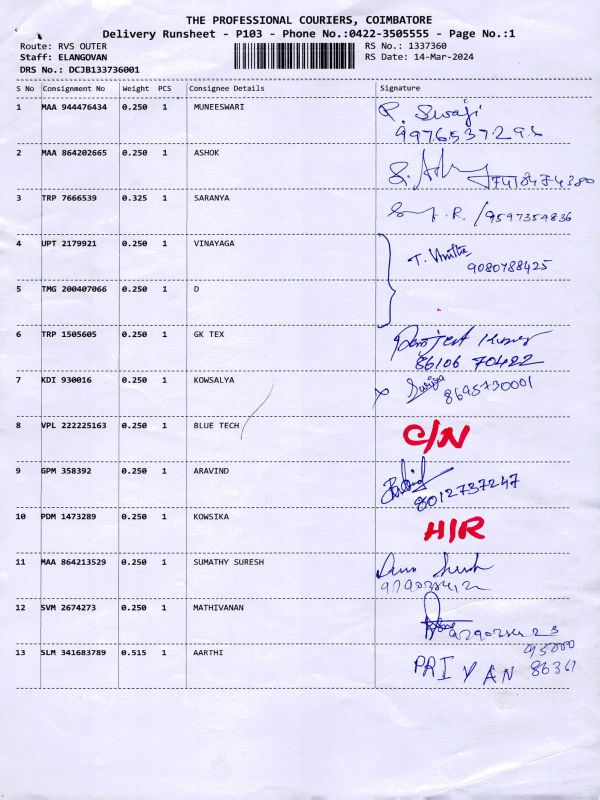 THE PROFESSIONAL COURIERS, COIMBATORE
Delivery Runsheet - P103 - Phone No.:0422-3505555 - Page No.:1
Route: RVS OUTER
Staff: ELANGOVAN
DRS No.: DCJB133736001
RS No.: 1337360
RS Date: 14-Mar-2024
S No Consignment No Weight PCS Consignee Details Signature
1 MAA 944476434 0.250 1 MUNEESWARI R. Swaji
9976537298
2 MAA 864202665 0.250 1 ASHOK
7418474380
3 TRP 7666539 0.325 1 SARANYA 9597354836
4 UPT 2179921 0.250 1 VINAYAGA T.
9080788425
5 TMG 200407066 0.250 1 D
6 TRP 1505605 0.250 1 GK TEX
86106 70422
7 KDI 930016 0.250 1 KOWSALYA
8695730001
8 VPL 222225163 0.250 1 BLUE TECH C/N
9 GPM 358392 0.250 1 ARAVIND
8012737247
10 PDM 1473289 0.250 1 KOWSIKA H/R
11 MAA 864213529 0.250 1 SUMATHY SURESH
12 SVM 2674273 0.250 1 MATHIVANAN
13 SLM 341683789 0.515 1 AARTHI PRIYAN
95000
86361